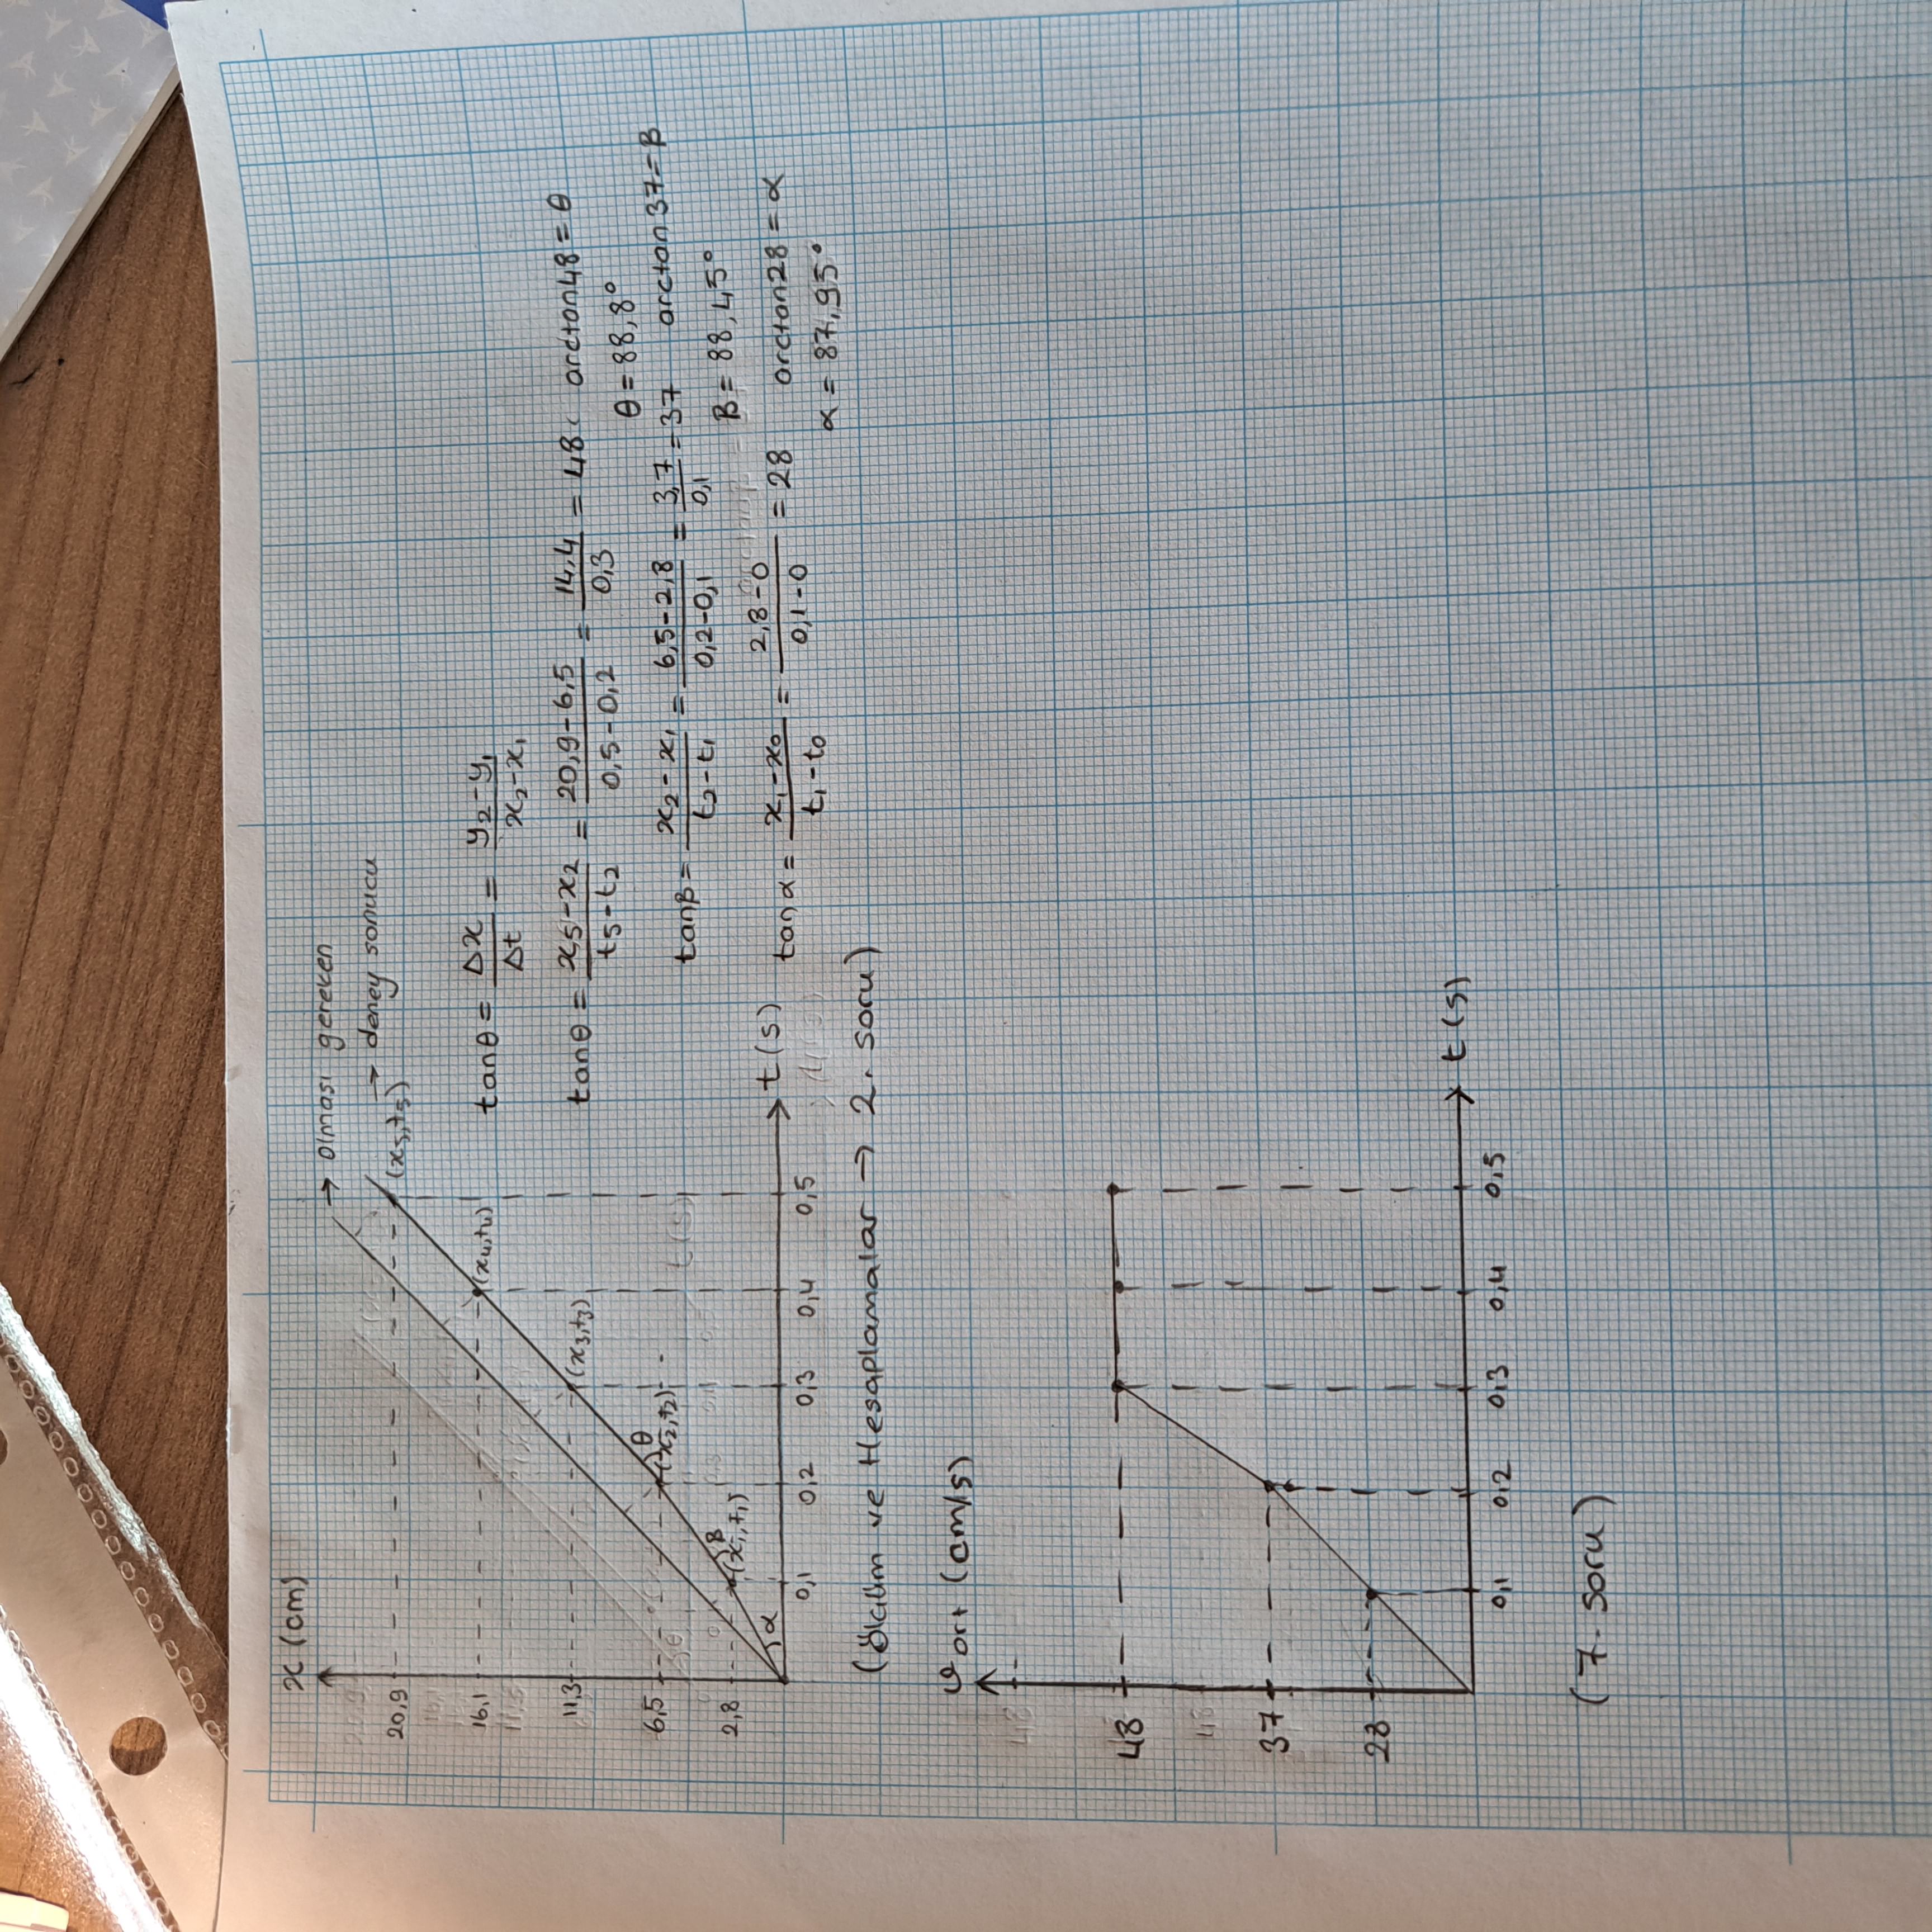 x (cm)
→ olması gereken
→ deney sonucu
20,9
(x₅,t₅)
16,1
(x₄,t₄)
11,3
(x₃,t₃)
6,5
θ
(x₂,t₂)
2,8
β
(x₁,t₁)
α
t (s)
0,1 0,2 0,3 0,4 0,5
tanθ = Δx/Δt = y₂-y₁/x₂-x₁
tanθ = x₅-x₂/t₅-t₂ = 20,9-6,5/0,5-0,2 = 14,4/0,3 = 48 arctan48 = θ
θ = 88,8°
tanβ = x₂-x₁/t₂-t₁ = 6,5-2,8/0,2-0,1 = 3,7/0,1 = 37 arctan37 = β
β = 88,45°
tanα = x₁-x₀/t₁-t₀ = 2,8-0/0,1-0 = 28 arctan28 = α
α = 87,95°
(Ölçüm ve Hesaplamalar → 2. soru)
ϑort (cm/s)
48
48
48
37
28
t (s)
0,1 0,2 0,3 0,4 0,5
(7. soru)